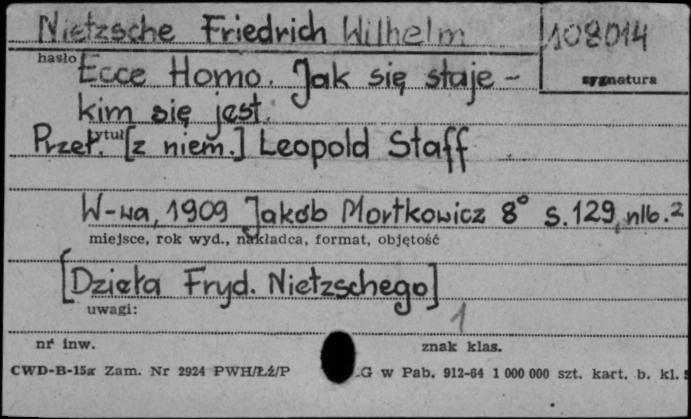 Nietzsche Friedrich Wilhelm
108014
hasło
sygnatura
Ecce Homo. Jak się staje -
kim się jest.
tytuł
Przeł. [z niem.] Leopold Staff
W-wa, 1909 Jakób Mortkowicz 8° s. 129, nlb. 2
miejsce, rok wyd., nakładca, format, objętość
[Dzieła Fryd. Nietzschego]
uwagi:
1
nr inw.
znak klas.
CWD-B-15a Zam. Nr 2924 PWH/Łź/P G w Pab. 912-64 1 000 000 szt. kart. b. kl.